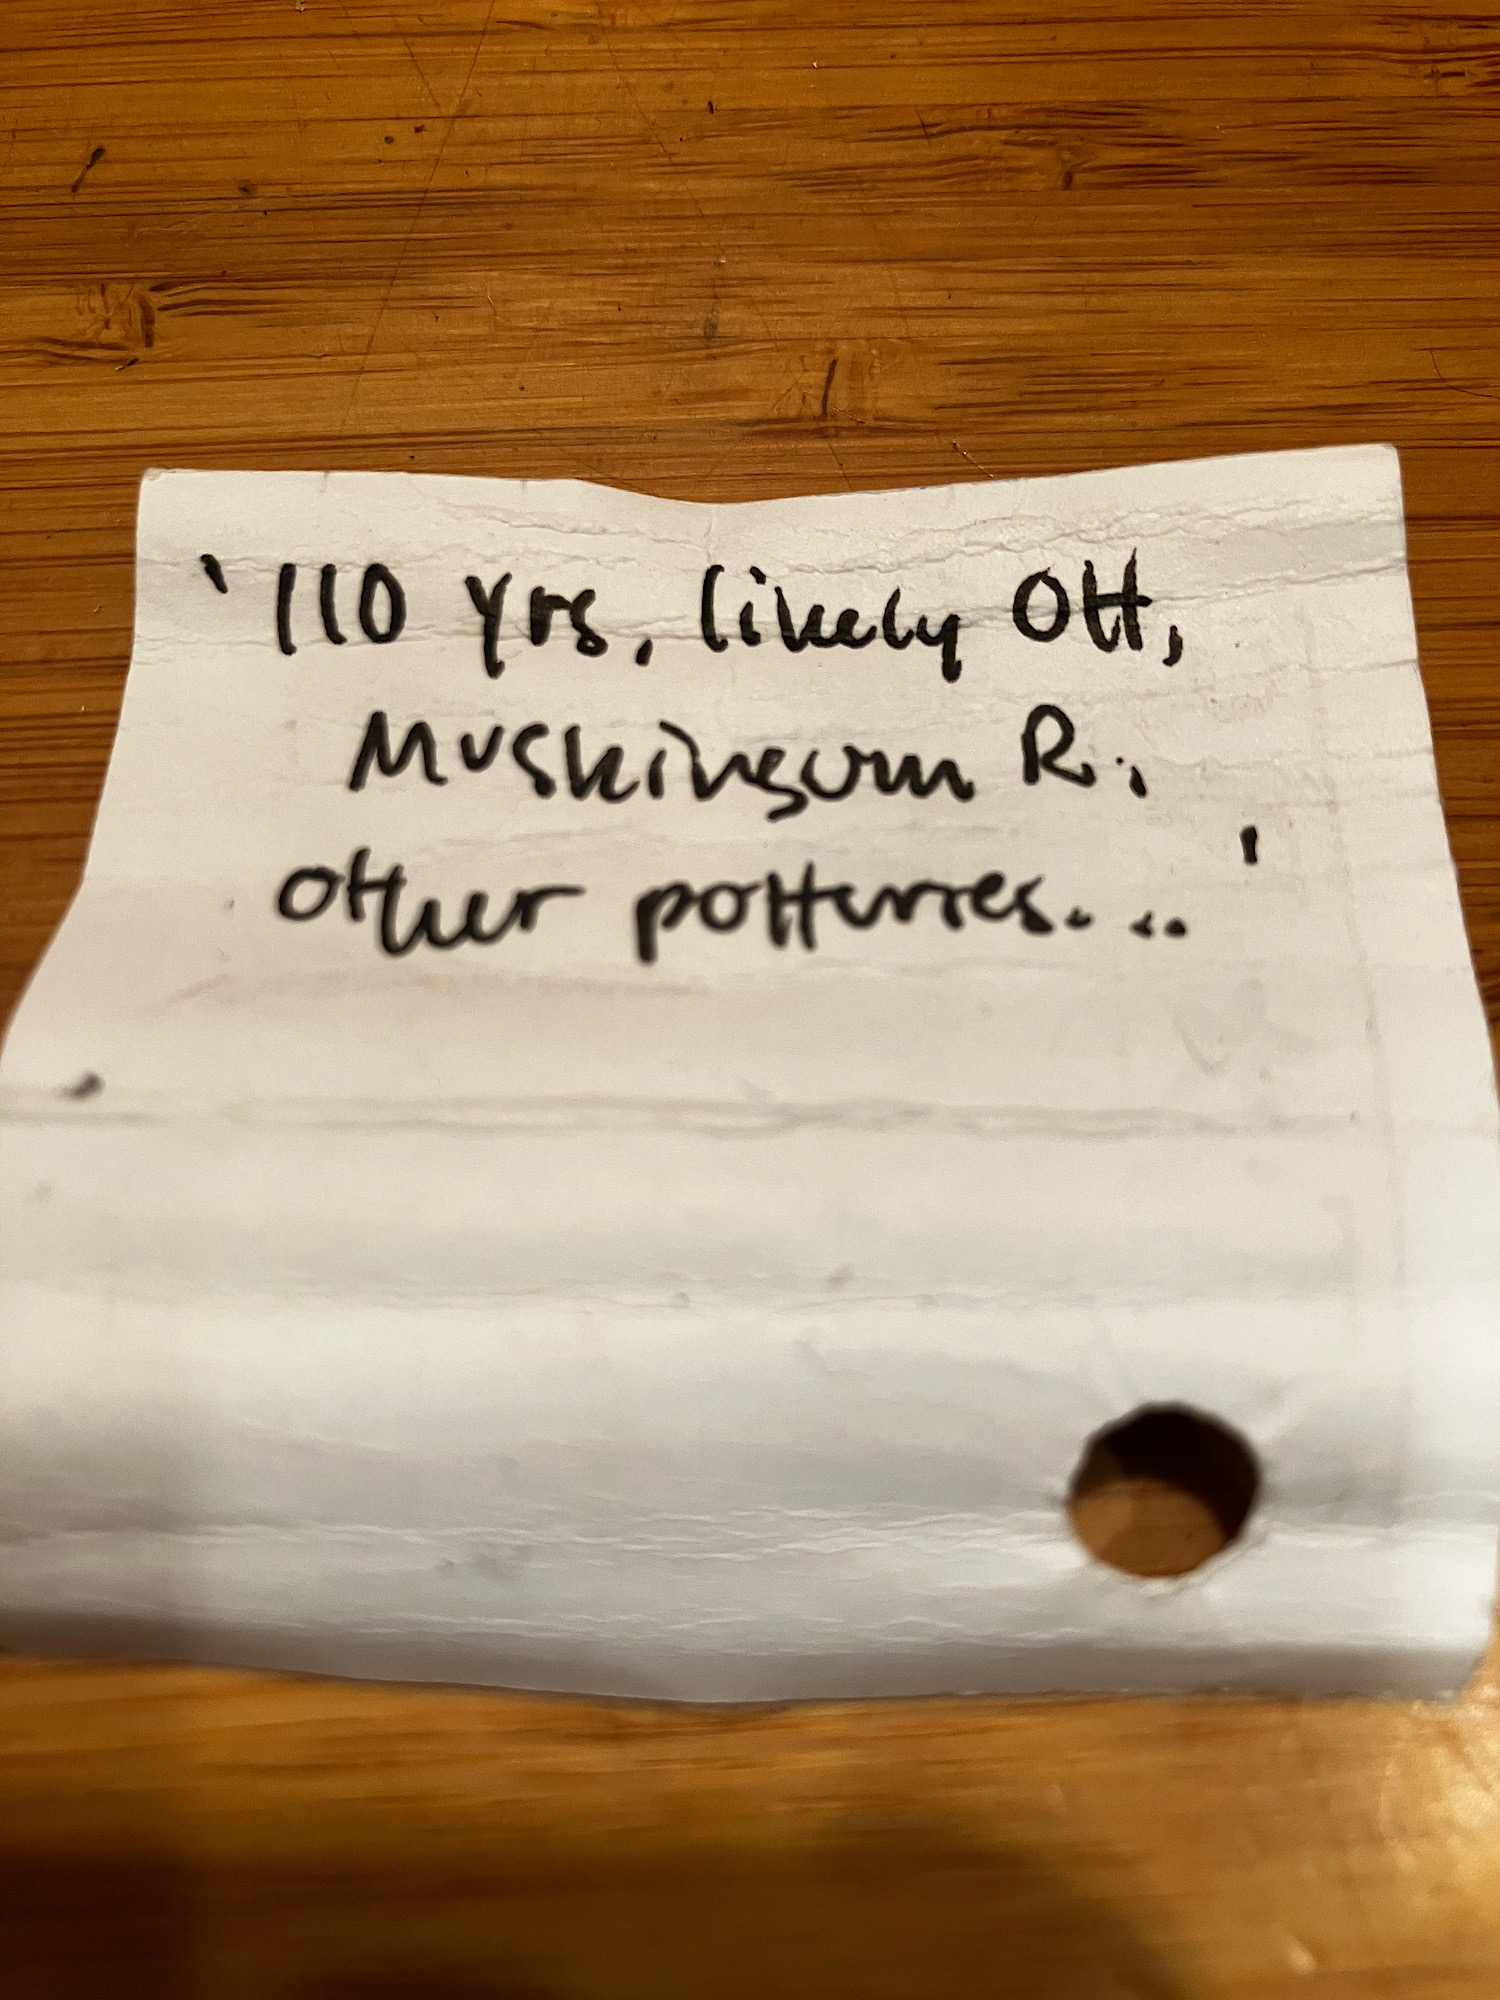 '110 yrs, likely OH,
Muskingum R.,
other potteries...'